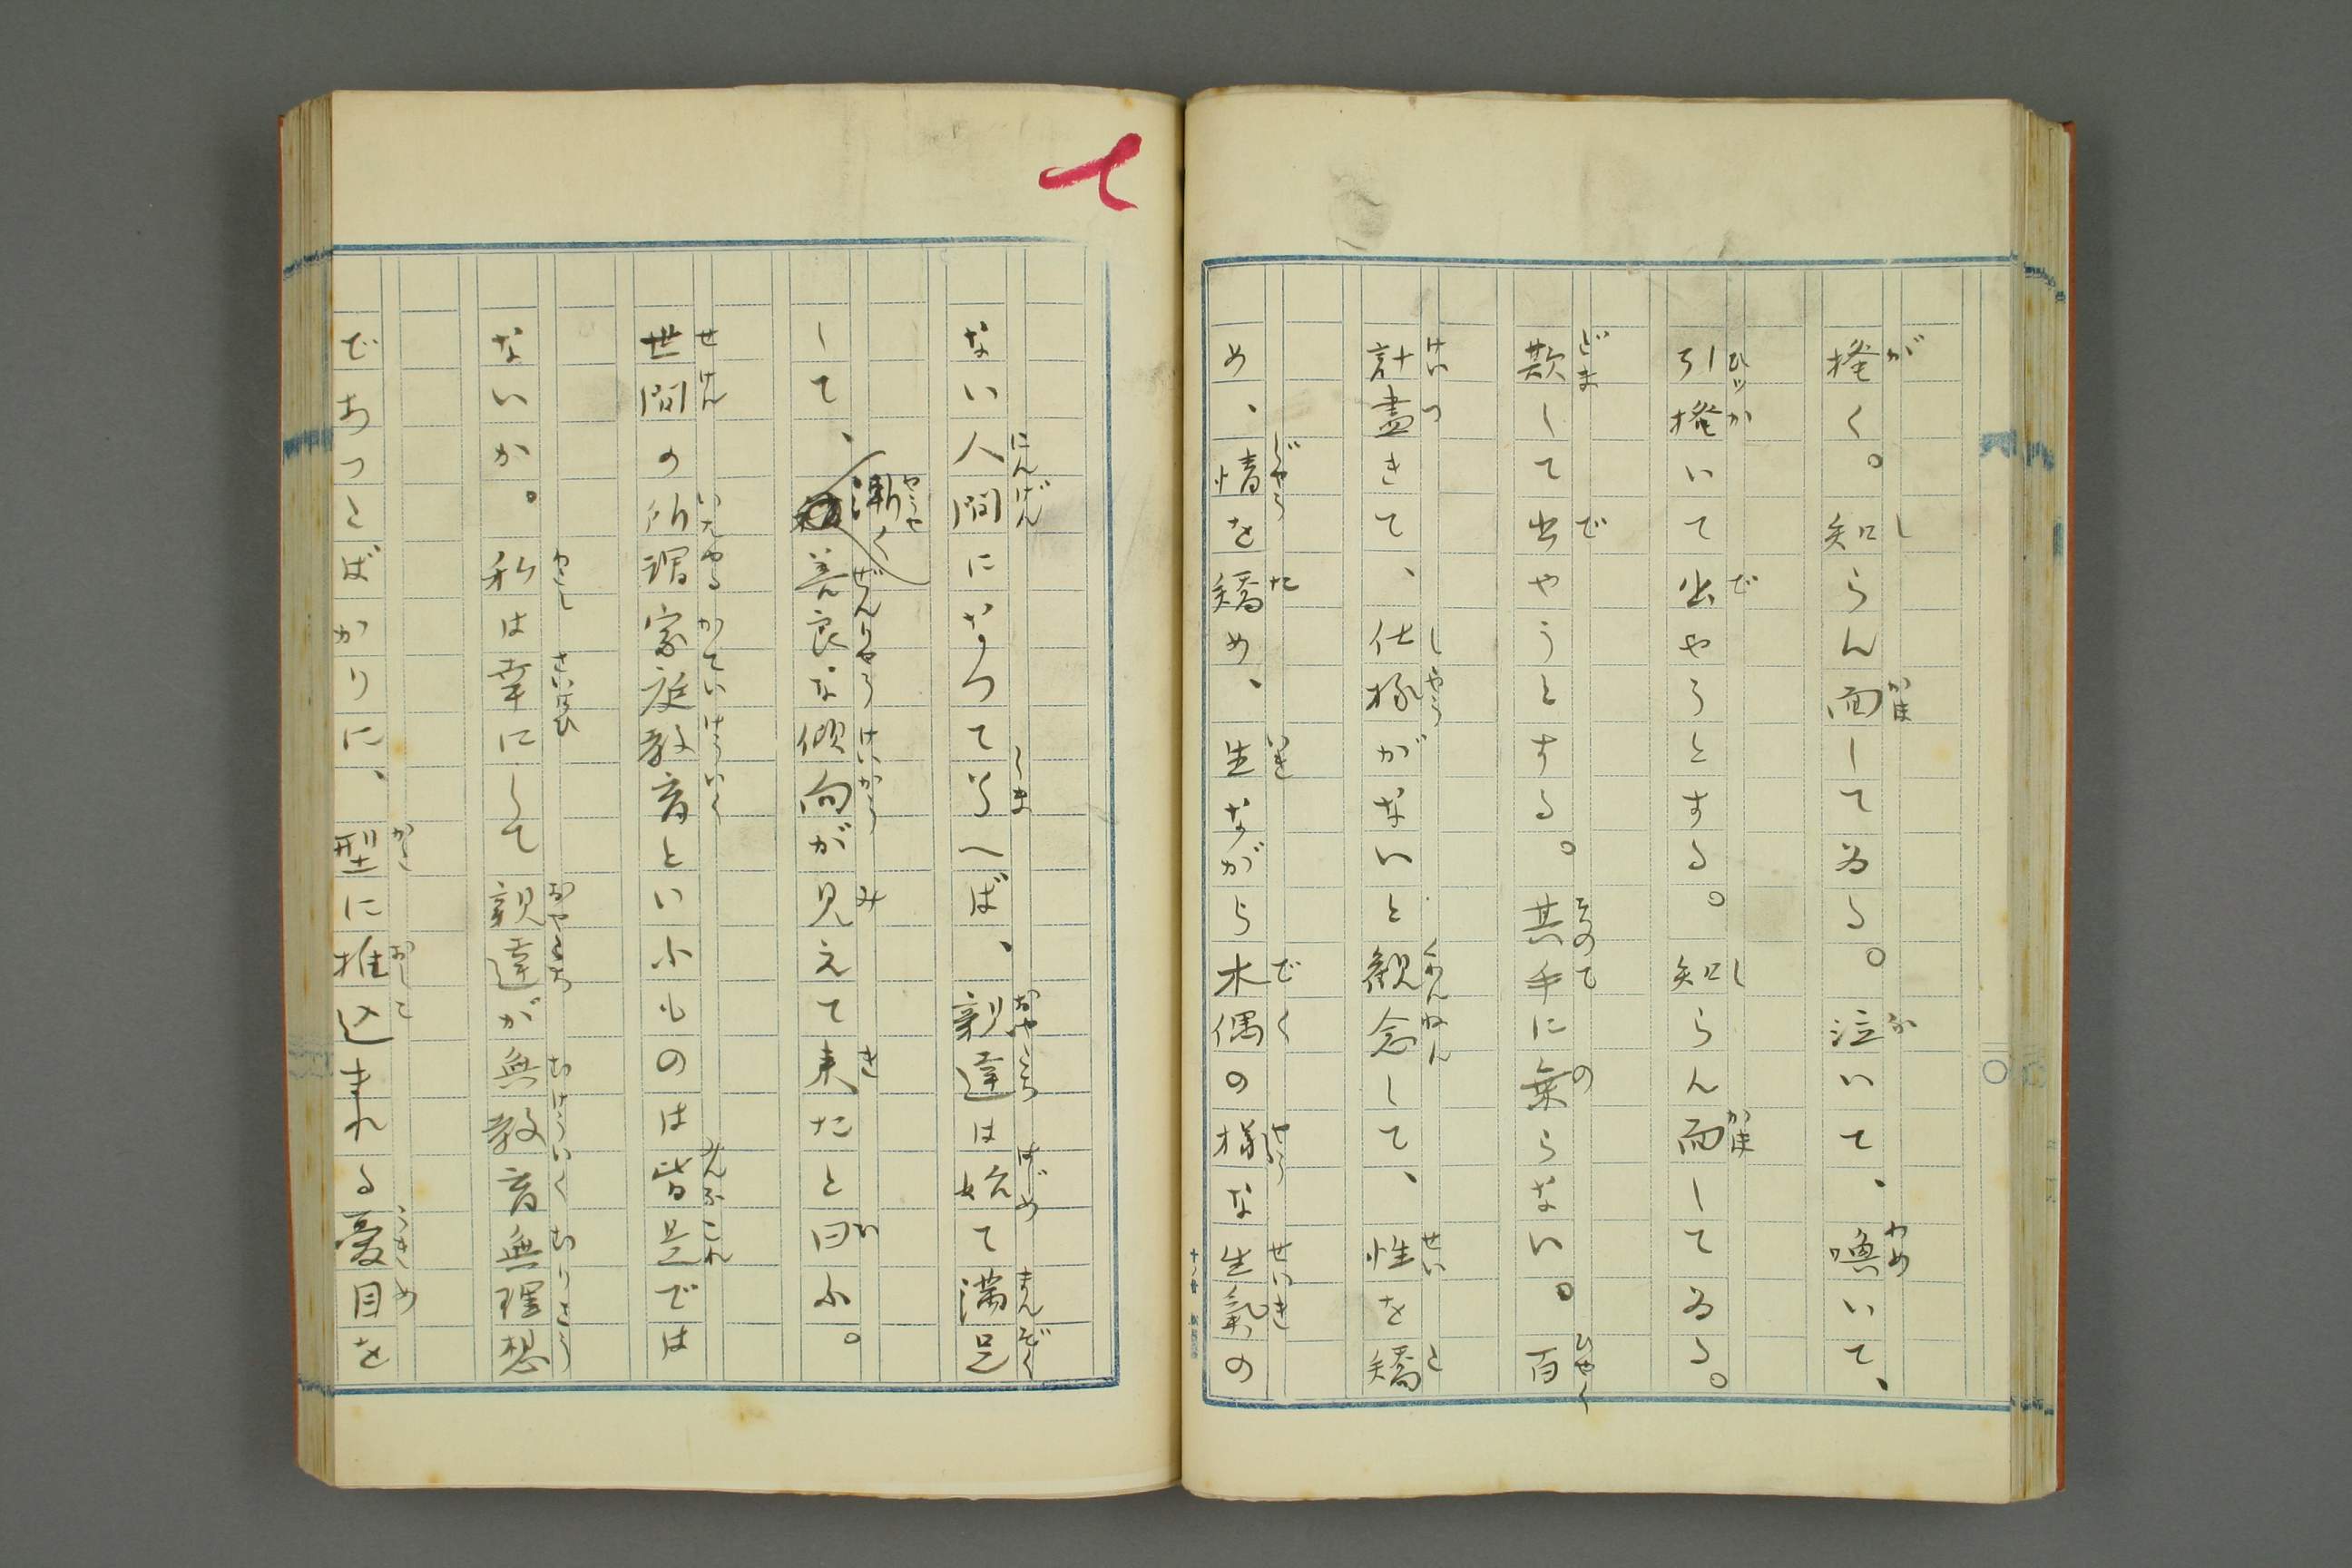 掻く。知らん面してゐる。泣いて、喚いて、
引掻いて出やうとする。知らん面してゐる。
欺して出やうとする。其手に乗らない。百
計盡きて、仕様がないと観念して、性を矯
め、情を矯め、生ながら木偶の様な生氣の
ない人間になつて了へば、親達は始て満足
して、漸く善良な傾向が見えて来たと曰ふ。
世間の所謂家庭教育といふものは皆是では
ないか。私は幸にして親達が無教育無理想
でおつとばかりに、型に推込まれる憂目を